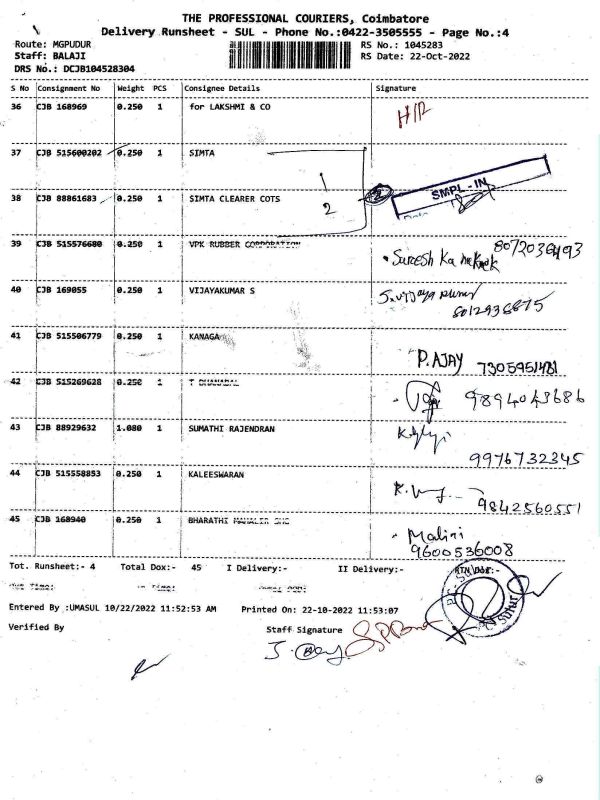 THE PROFESSIONAL COURIERS, Coimbatore
Delivery Runsheet - SUL - Phone No.:0422-3505555 - Page No.:4
Route: MGPUDUR RS No.: 1045283
Staff: BALAJI RS Date: 22-Oct-2022
DRS No.: DCJB104528304
S No Consignment No Weight PCS Consignee Details Signature
36 CJB 168969 0.250 1 for LAKSHMI & CO
37 CJB 515600202 0.250 1 SIMTA
1
SMPL-IN
38 CJB 88861683 0.250 1 SIMTA CLEARER COTS
2 2
39 CJB 515576680 0.250 1 VPK RUBBER CORPORATION
Suresh
40 CJB 169055 0.250 1 VIJAYAKUMAR S
S.vijaya kumar
8012936875
41 CJB 515506779 0.250 1 KANAGA
P. AJAY 7305951481
42 CJB 515269628 0.250 1 T DHANABAL
9894043686
43 CJB 88929632 1.080 1 SUMATHI RAJENDRAN
9976732345
44 CJB 515558853 0.250 1 KALEESWARAN
9842560551
45 CJB 168940 0.250 1 BHARATHI
Malini
9600536008
Tot. Runsheet:- 4 Total Dox:- 45 I Delivery:- II Delivery:-
Entered By :UMASUL 10/22/2022 11:52:53 AM Printed On: 22-10-2022 11:53:07
Verified By Staff Signature